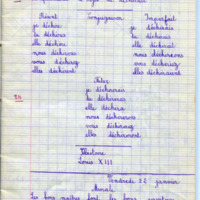 Présent Conjugaison Imparfait
je déchire je déchirais
tu déchires tu déchirais
elle déchire elle déchirait
nous déchirons nous déchirions
vous déchirez vous déchiriez
elles déchirent elles déchiraient
Futur
je déchirerai
tu déchireras
elle déchirera
nous déchirerons
vous déchirerez
elles déchireront
Histoire
Louis XIII
Vendredi 22 janvier
Morale
Les bons maîtres font les bons